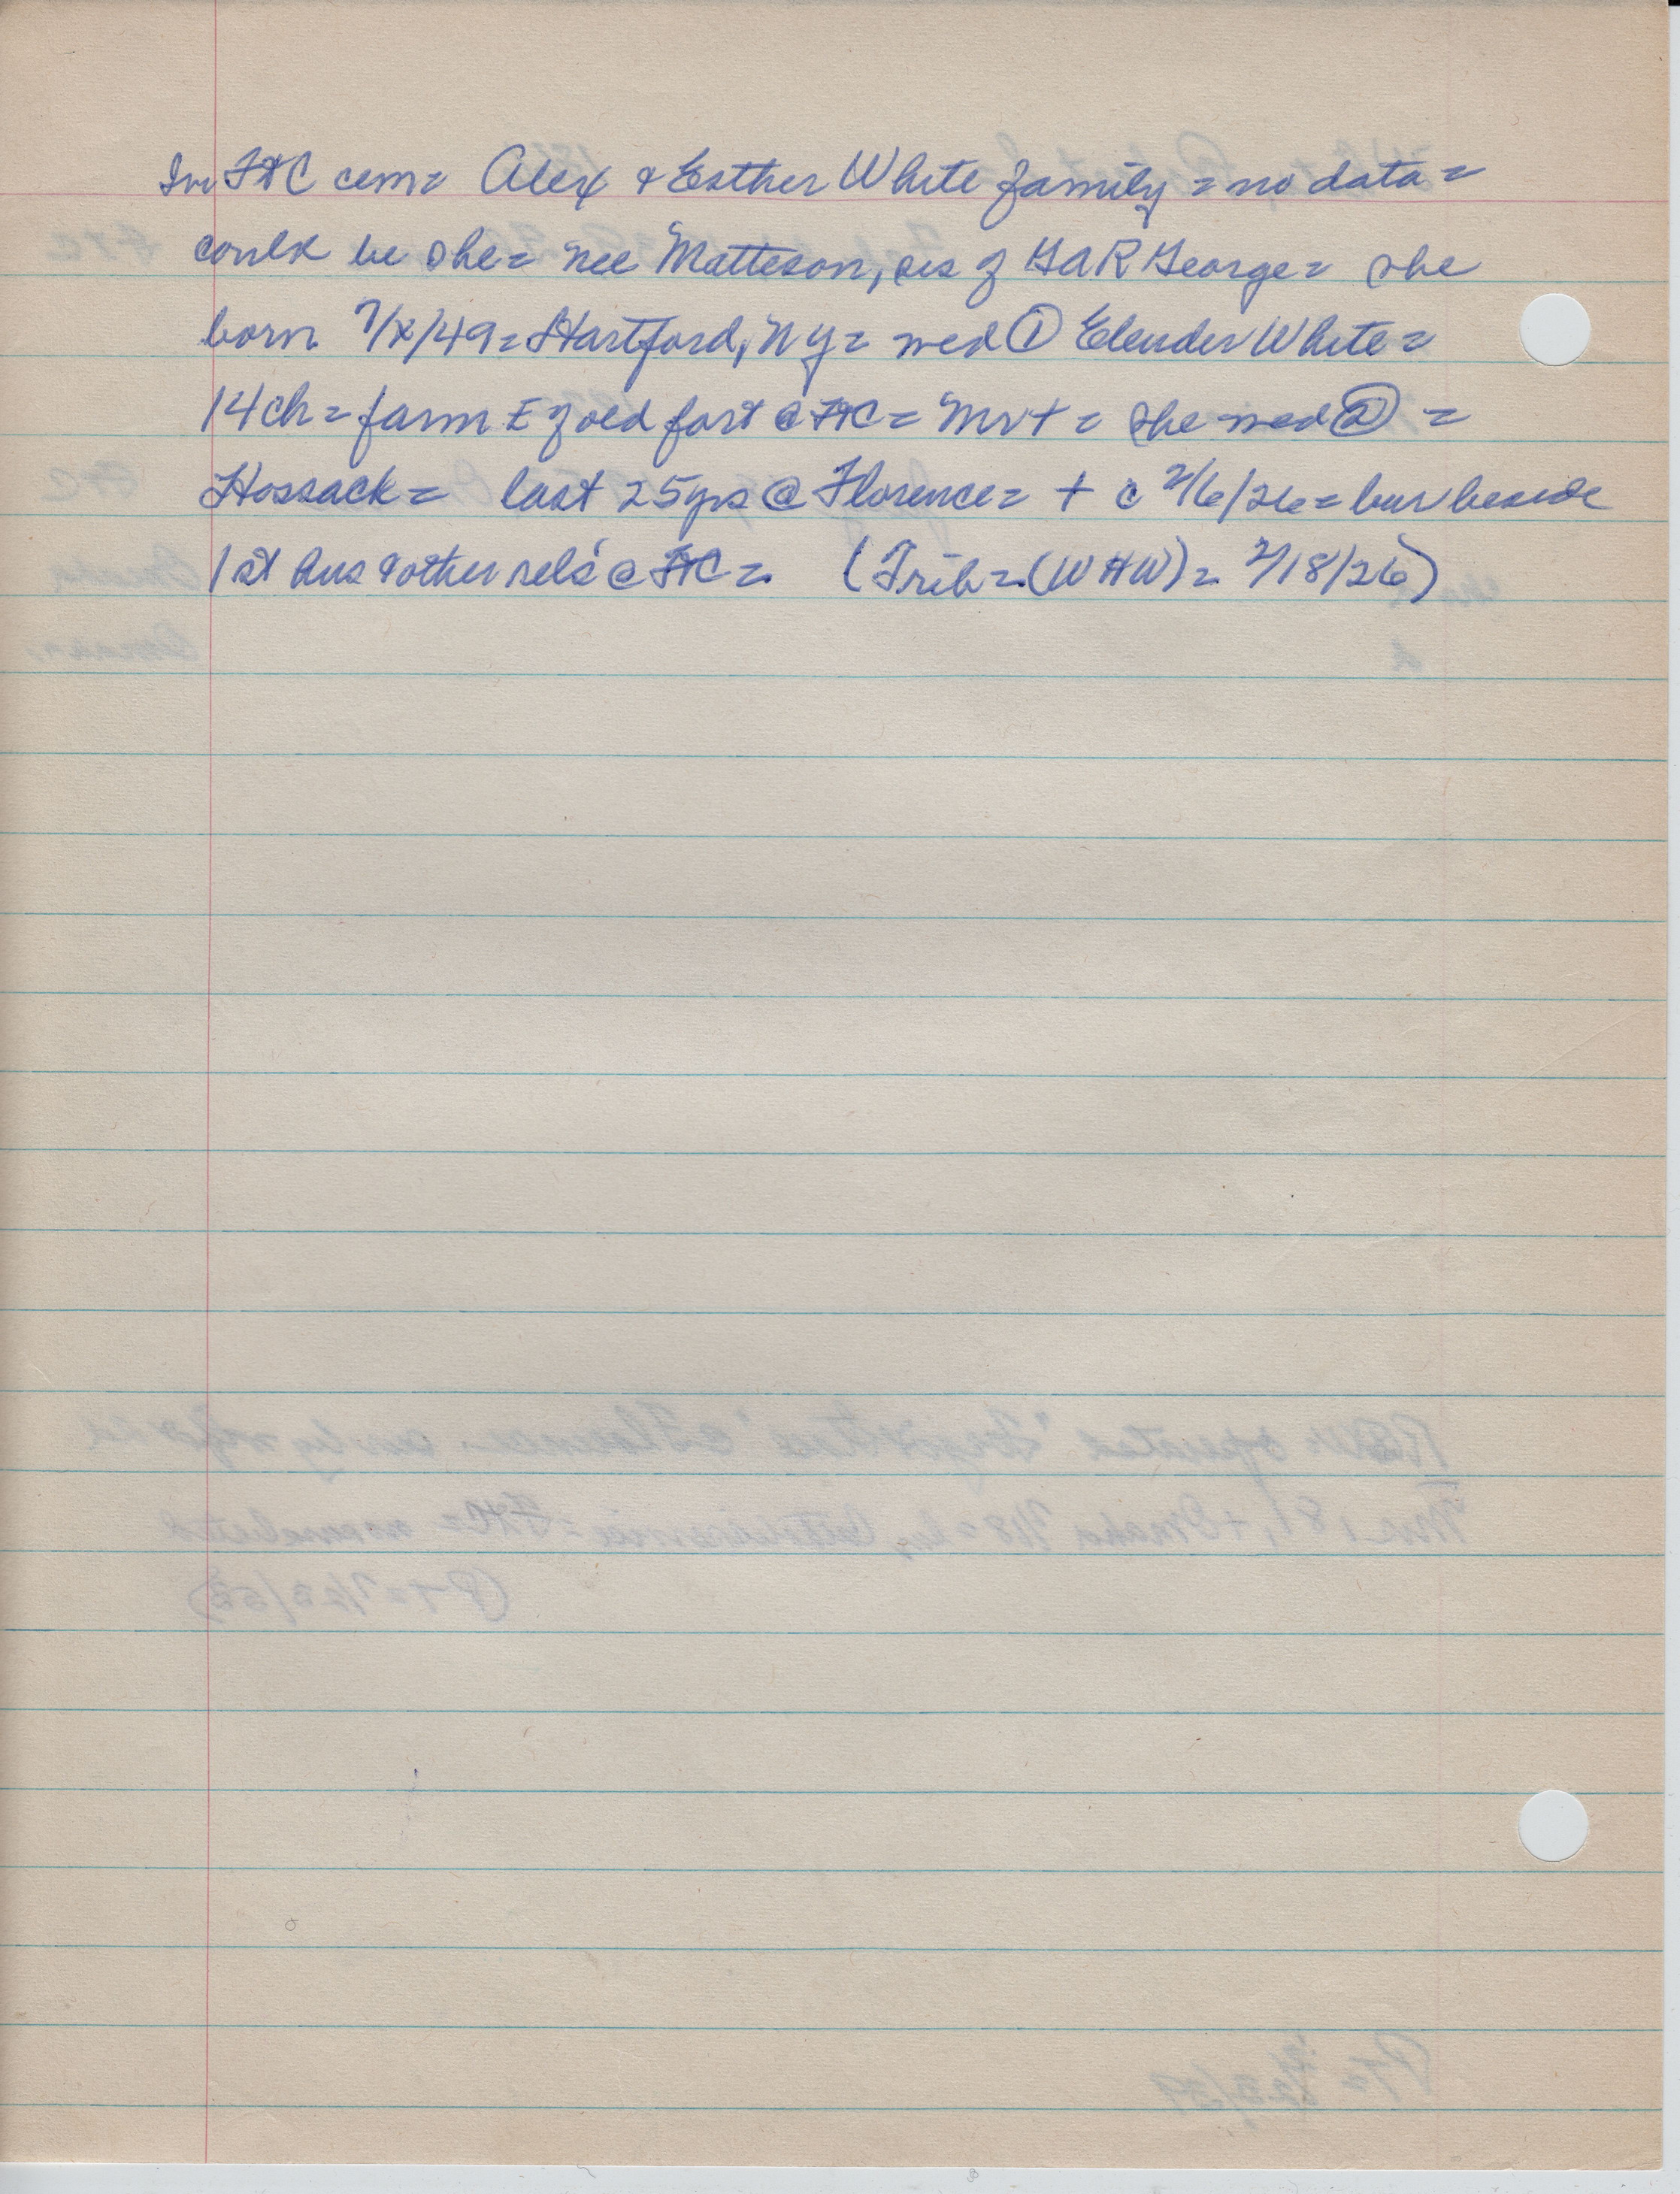 In FtC cem= Alex & Esther White family = no data =
could be she= nee Matteson, sis of GAR George= she
born 7/x/49= Hartford, NY= med ① Elender White=
14ch= farm E of old fort @ FtC= Mr + = she med ② =
Hossack= last 25yrs @ Florence= + c 2/6/26= bur beside
1st hus & other rels @ FtC =. (Trib=.(WHW)=. 2/18/26)